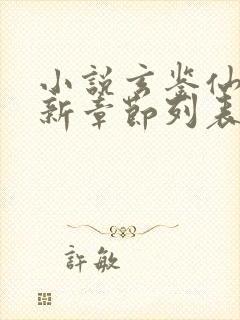 小说玄鉴仙
新章节列表
許敏